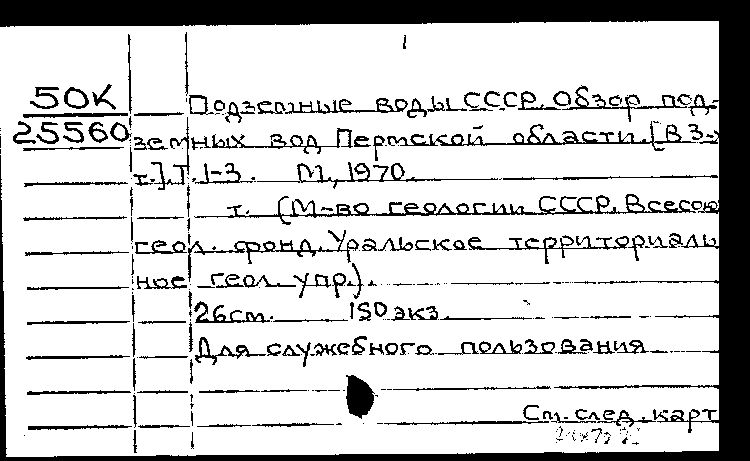 50К
25560
Подземные воды СССР. Обзор под-
земных вод Пермской области. [В 3-х
т.]. Т. 1-3. М., 1970.
т. (М-во геологии СССР. Всесоюз
геол. фонд. Уральское территориаль
ное геол. упр.).
26см. 150 экз.
Для служебного пользования
См. след. карт